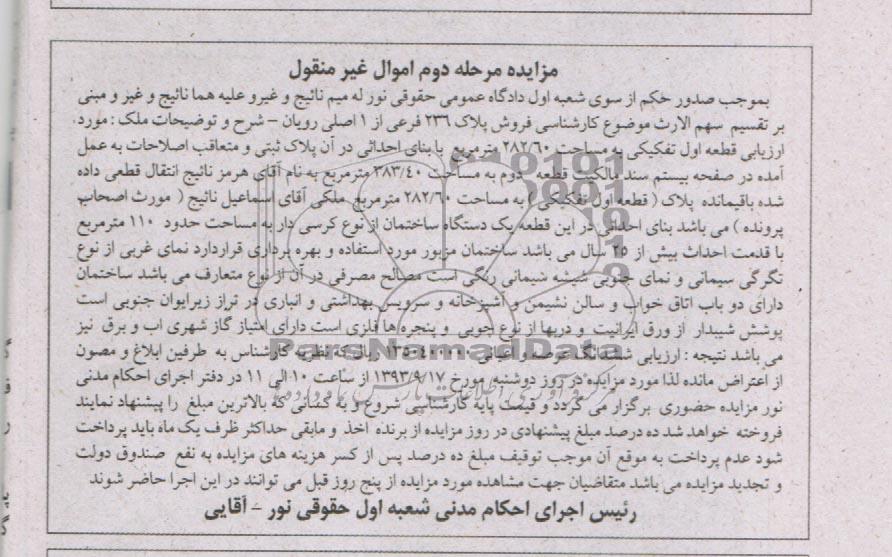 مزایده مرحله دوم اموال غیر منقول
بموجب صدور حکم از سوی شعبه اول دادگاه عمومی حقوقی نور له میم نائیج و غیرو علیه هما نائیج و غیز و مبنی
بر تقسیم سهم الارث موضوع کارشناسی فروش پلاک ۲۳۶ فرعی از ۱ اصلی رویان – شرح و توضیحات ملک : مورد
ارزیابی قطعه اول تفکیکی به مساحت ۲۸۲/۶۰ مترمربع با بنای احداثی در آن پلاک ثبتی و متعاقب اصلاحات به عمل
آمده در صفحه بیستم سند مالکیت قطعه دوم به مساحت ۳۸۳/۴۰ مترمربع به نام آقای هرمز نائیج انتقال قطعی داده
شده باقیمانده پلاک ( قطعه اول تفکیکی ) به مساحت ۲۸۲/۶۰ مترمربع ملکی آقای اسماعیل نائیج ( مورث اصحاب
پرونده ) می باشد بنای احداثی در این قطعه یک دستگاه ساختمان از نوع کرسی دار به مساحت حدود ۱۱۰ مترمربع
با قدمت احداث بیش از ۲۵ سال می باشد ساختمان مزبور مورد استفاده و بهره برداری قراردارد نمای غربی از نوع
نگرگی سیمانی و نمای جنوبی شیشه سیمانی رنگی است مصالح مصرفی در آن از نوع متعارف می باشد ساختمان
دارای دو باب اتاق خواب و سالن نشیمن و آشپزخانه و سرویس بهداشتی و انباری در تراز زیرایوان جنوبی است
پوشش شیبدار از ورق ایرانیت و دربها از نوع چوبی و پنجره ها فلزی است دارای امتیاز گاز شهری اب و برق نیز
می باشد نتیجه : ارزیابی ششدانگ عرصه و اعیانی ریال که نظریه کارشناس به طرفین ابلاغ و مصون
از اعتراض مانده لذا مورد مزایده در روز دوشنبه مورخ ۱۳۹۳/۹/۱۷ از ساعت ۱۰ الی ۱۱ در دفتر اجرای احکام مدنی
نور مزایده حضوری برگزار می گردد و قیمت پایه کارشناسی شروع و به کسانی که بالاترین مبلغ را پیشنهاد نمایند
فروخته خواهد شد ده درصد مبلغ پیشنهادی در روز مزایده از برنده اخذ و مابقی حداکثر ظرف یک ماه باید پرداخت
شود عدم پرداخت به موقع آن موجب توقیف مبلغ ده درصد پس از کسر هزینه های مزایده به نفع صندوق دولت
و تجدید مزایده می باشد متقاضیان جهت مشاهده مورد مزایده از پنج روز قبل می توانند در این اجرا حاضر شوند
رئیس اجرای احکام مدنی شعبه اول حقوقی نور – آقایی
ParsNamadData